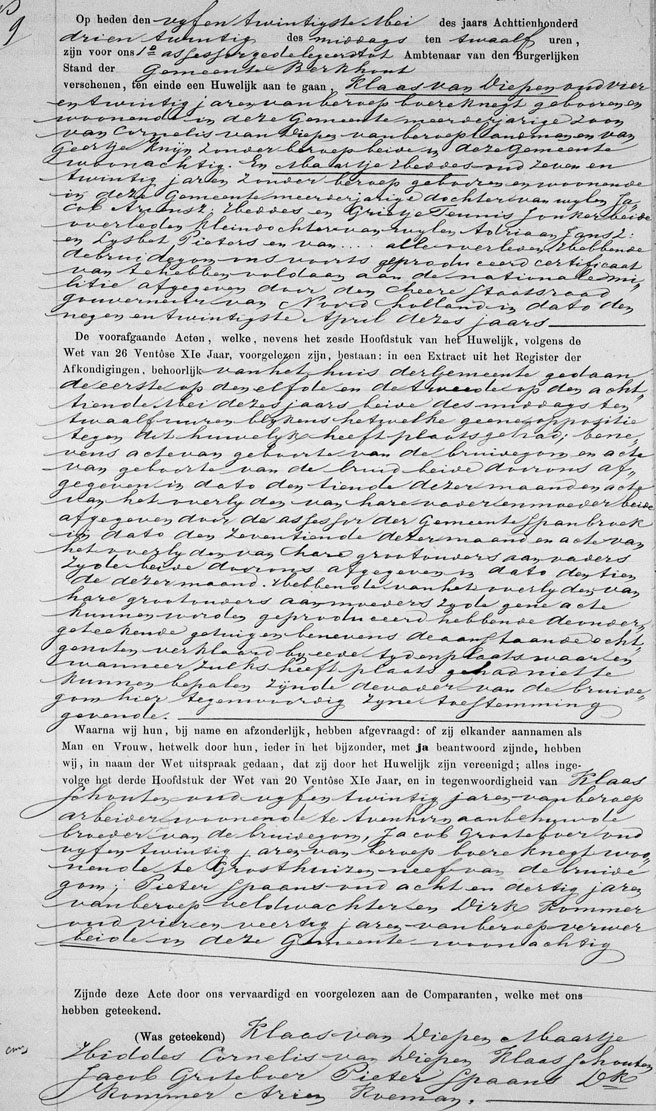 9
Op heden den vyfen twintigste Mei des jaars Achttienhonderd
drien twintig des middags ten twaalf uren,
zijn voor ons 1e assessor gedelegeerd tot Ambtenaar van den Burgerlijken
Stand der Gemeente Berkhout
verschenen, ten einde een Huwelijk aan te gaan, Klaas van Diepen oud vier
en twintig jaren van beroep boereknegt gebooren en
woonende in deze Gemeente meerderjarige zoon
van Cornelis van Diepen van beroep landman en van
Geertje Knijn zonder beroep beide in deze Gemeente
woonachtig. En Maartje Hiddes oud zeven en
twintig jaren zonder beroep gebooren en woonende
in deze Gemeente meerderjarige dochter van wylen Ja-
cob Ariansz. Hiddes en Grietje Teunis Jonker beide
overleden kleindochter van wylen Adriaan Jansz:
en Lysbet Pieters en van .... alle overleden Hebbende
de bruidegom ons voorts geproduceerd certificaat
van te hebben voldaan aan de nationale mi-
litie afgegeven door den Heere Staatsraad
gouverneur van Noord holland in dato den
negen en twintigste April dezes jaars
De voorafgaande Acten, welke, nevens het zesde Hoofdstuk van het Huwelijk, volgens de
Wet van 26 Ventôse XIe Jaar, voorgelezen zijn, bestaan: in een Extract uit het Register der
Afkondigingen, behoorlijk van het huis der Gemeente gedaan
de eerste op den elfde en de tweede op den acht-
tiende Mei dezes jaars beide des middags ten
twaalf uuren blykens hetwelke geene oppozitie
tegen dit huwelyk heeft plaats gehad; bene-
vens acte van geboorte van de bruidegom en acte
van geboorte van de bruid beide door ons af-
gegeven in dato den tiende dezer maand en acte
van het overlyden van hare vader en moeder beide
afgegeven door de assessor der Gemeente Spanbroek
in dato den zeventiende dezer maand en acte van
het overlyden van hare grootouders aan vaders
zyde beide door ons afgegeven in dato den tien
de dezer maand. Hebbende van het overlyden van
hare grootouders aan moeders zyde gene acte
kunnen worden geproduceerd hebbende de onder-
geteekende getuigen benevens de aanstaande echt-
genoten verklaard by eede tyd en plaats waar en
wanneer zulks heeft plaats gehad niet te
kunnen bepalen zynde de vader van de bruide-
gom hier tegenwoordig zyne toestemming
gevende.
Waarna wij hun, bij name en afzonderlijk, hebben afgevraagd: of zij elkander aannamen als
Man en Vrouw, hetwelk door hun, ieder in het bijzonder, met ja beantwoord zijnde, hebben
wij, in naam der Wet uitspraak gedaan, dat zij door het Huwelijk zijn vereenigd; alles inge-
volge het derde Hoofdstuk der Wet van 20 Ventôse XIe Jaar, en in tegenwoordigheid van Klaas
Schouten oud vyfen twintig jaren van beroep
arbeider woonende te Avenhorn aanbehuwde
broeder van de bruidegom, Jacob Grooteboer oud
vyfen twintig jaren van beroep boereknegt woo-
nende te Grosthuizen neef van de bruide
gom; Pieter Spaans oud acht en dertig jaren
van beroep veldwachter en Dirk Kommer
oud vier en veertig jaren van beroep verwer
beide in deze Gemeente woonachtig
Zijnde deze Acte door ons vervaardigd en voorgelezen aan de Comparanten, welke met ons
hebben geteekend.
(Was geteekend) Klaas van Diepen Maartje
Hiddes Cornelis van Diepen Klaas Schouten
Jacob Groteboer Pieter Spaans Dk
Kommer Arien Koeman.